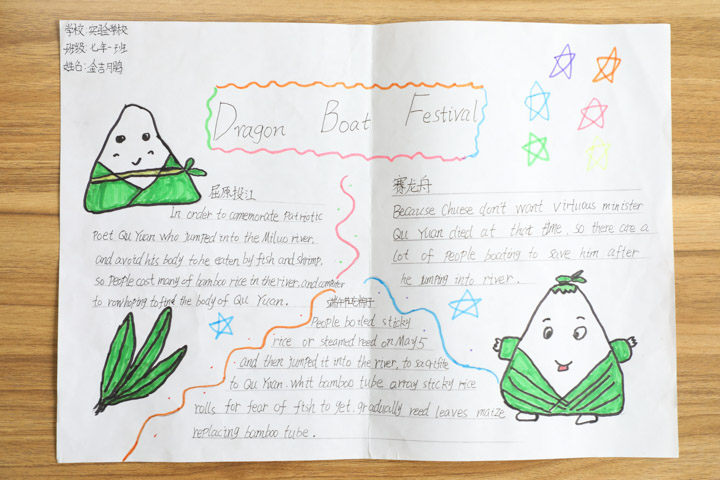 学校:实验学校
班级:七年一班
姓名:金吉月鹏
Dragon Boat Festival
屈原投江
In order to comemorate patriotic
poet Qu Yuan who jumped into the Miluo river.
and avoid his body to be eaten by fish and shrimp,
so people cast many of bamboo rice in the river. and
to row hoping to find the body of Qu Yuan.
赛龙舟
Because Chuese don't want virtuous minister
Qu Yuan died at that time, so there are a
lot of people boating to save him after
he jumping into river.
People boiled sticky
rice or steamed reed on May 5
and then jumped it into the river, to
to Qu Yuan. whit bamboo tube array sticky rice
rolls for fear of fish to get. gradually reed leaves maize
replacing bamboo tube.